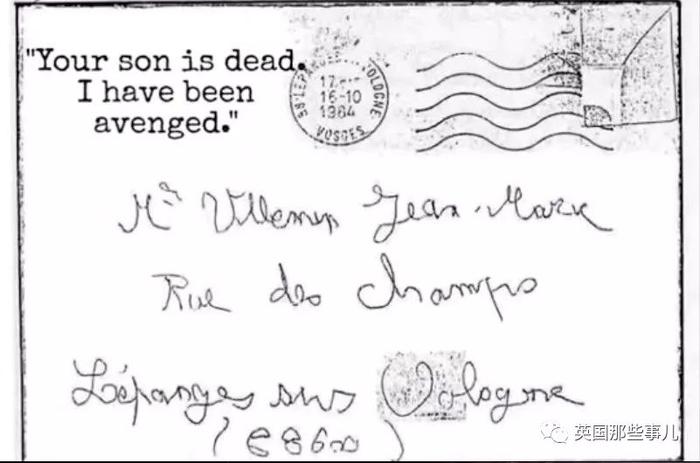 "Your son is dead.
I have been
avenged."
17
16-10
1984
VOLOGNE
VOSGES
Mr Villemin Jean-Marie
Rue des Champs
Lépanges sur Vologne
(88600)
英国那些事儿